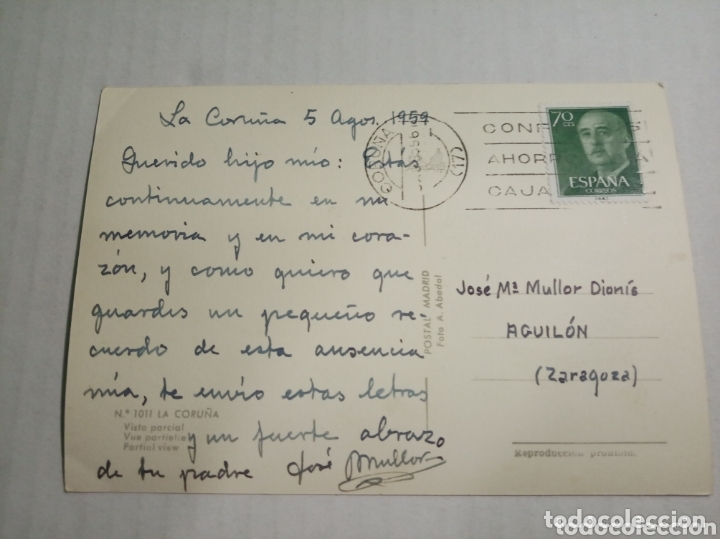 La Coruña 5 Agos. 1959
Querido hijo mio: Estás
continuamente en mi
memoria y en mi cora-
zón, y como quiero que
guardes un pequeño re-
cuerdo de esta ausencia
mía, te envio estas letras
y un fuerte abrazo
de tu padre José Mullor
N.º 1011 LA CORUÑA
Vista parcial
Vue partielle
Partial view
POSTAL MADRID
Foto A. Abadal
CORUÑA
(17)
CONF
AHORR
CAJA
70
CTS
ESPAÑA
CORREOS
José Mª Mullor Dionís
AGUILÓN
(Zaragoza)
Reproducción prohibida.
todocoleccion.net